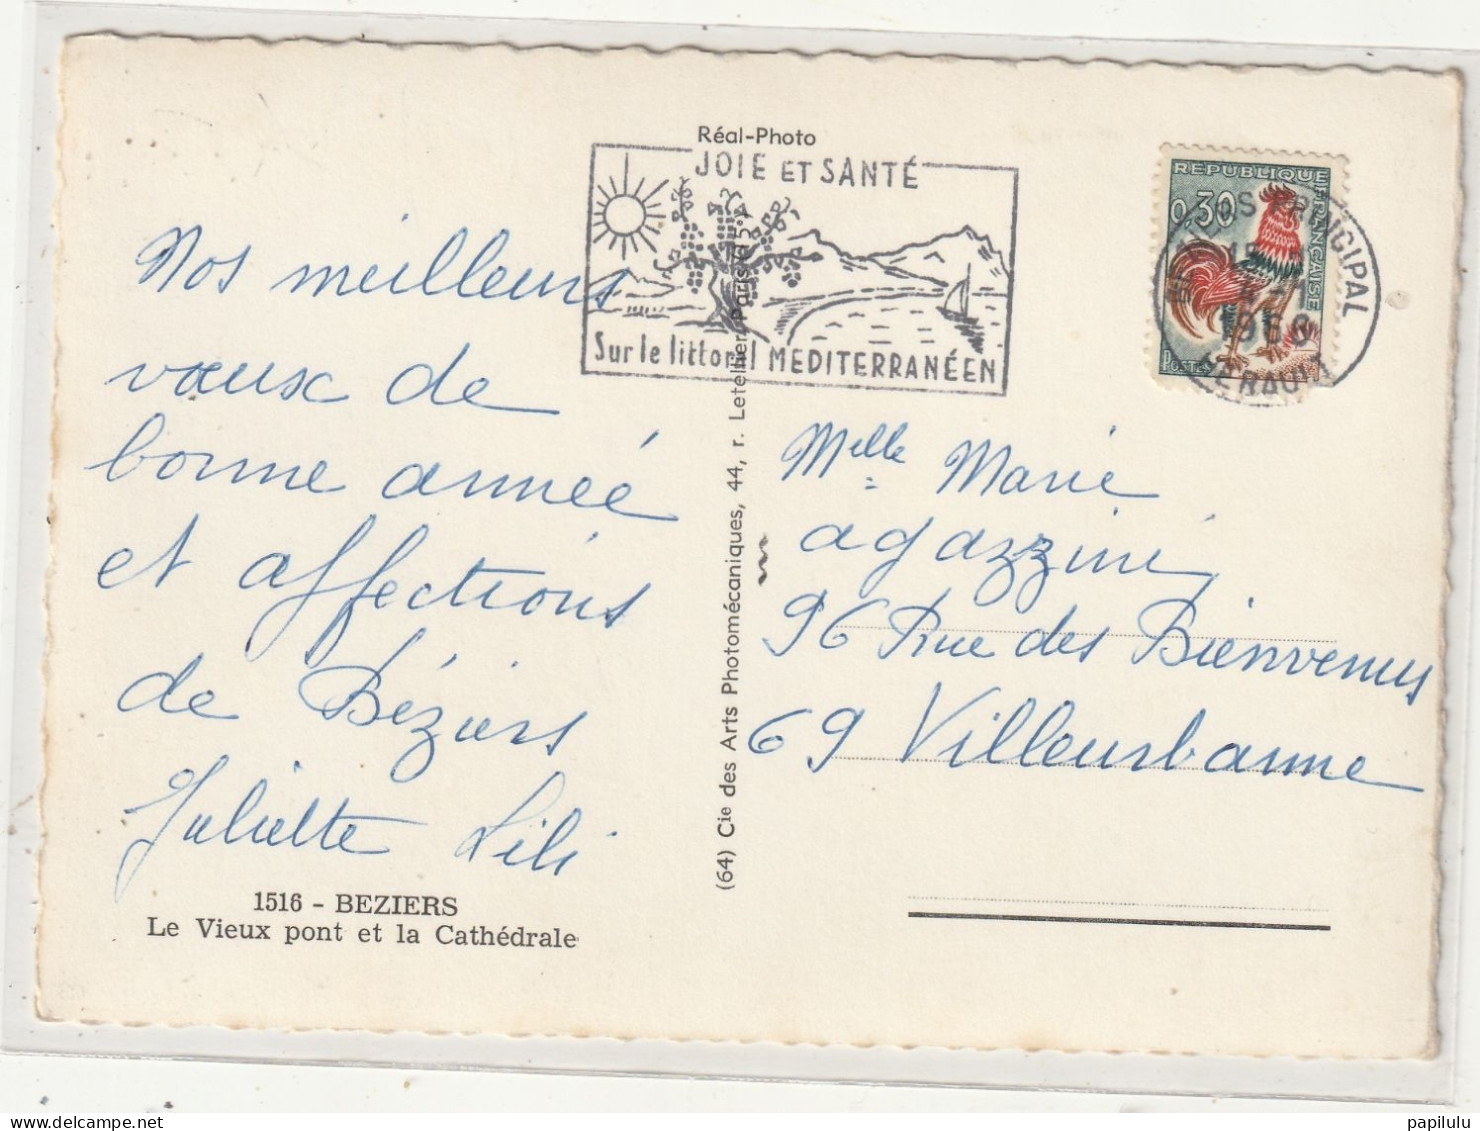 Réal-Photo
JOIE ET SANTÉ
Sur le littoral MEDITERRANÉEN
REPUBLIQUE FRANÇAISE
0,30
POSTES
PRINCIPAL
1968
HERAULT
Nos meilleurs
vœux de
bonne année
et affections
de Béziers
Juliette Lili
1516 - BEZIERS
Le Vieux pont et la Cathédrale
(64) Cie des Arts Photomécaniques, 44, r. Letellier, Paris (15e)
Melle Marie
agazzini
96 Rue des Bienvenus
69 Villeurbanne
papilulu